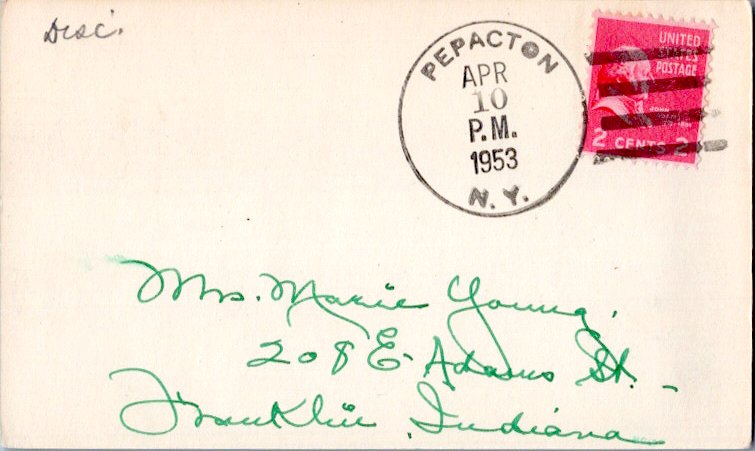 Disc.
PEPACTON
APR
10
P.M.
1953
N.Y.
UNITED
STATES
POSTAGE
JOHN
2 CENTS 2
Mrs. Marie Young.
208 E. Adams St.
Franklin, Indiana